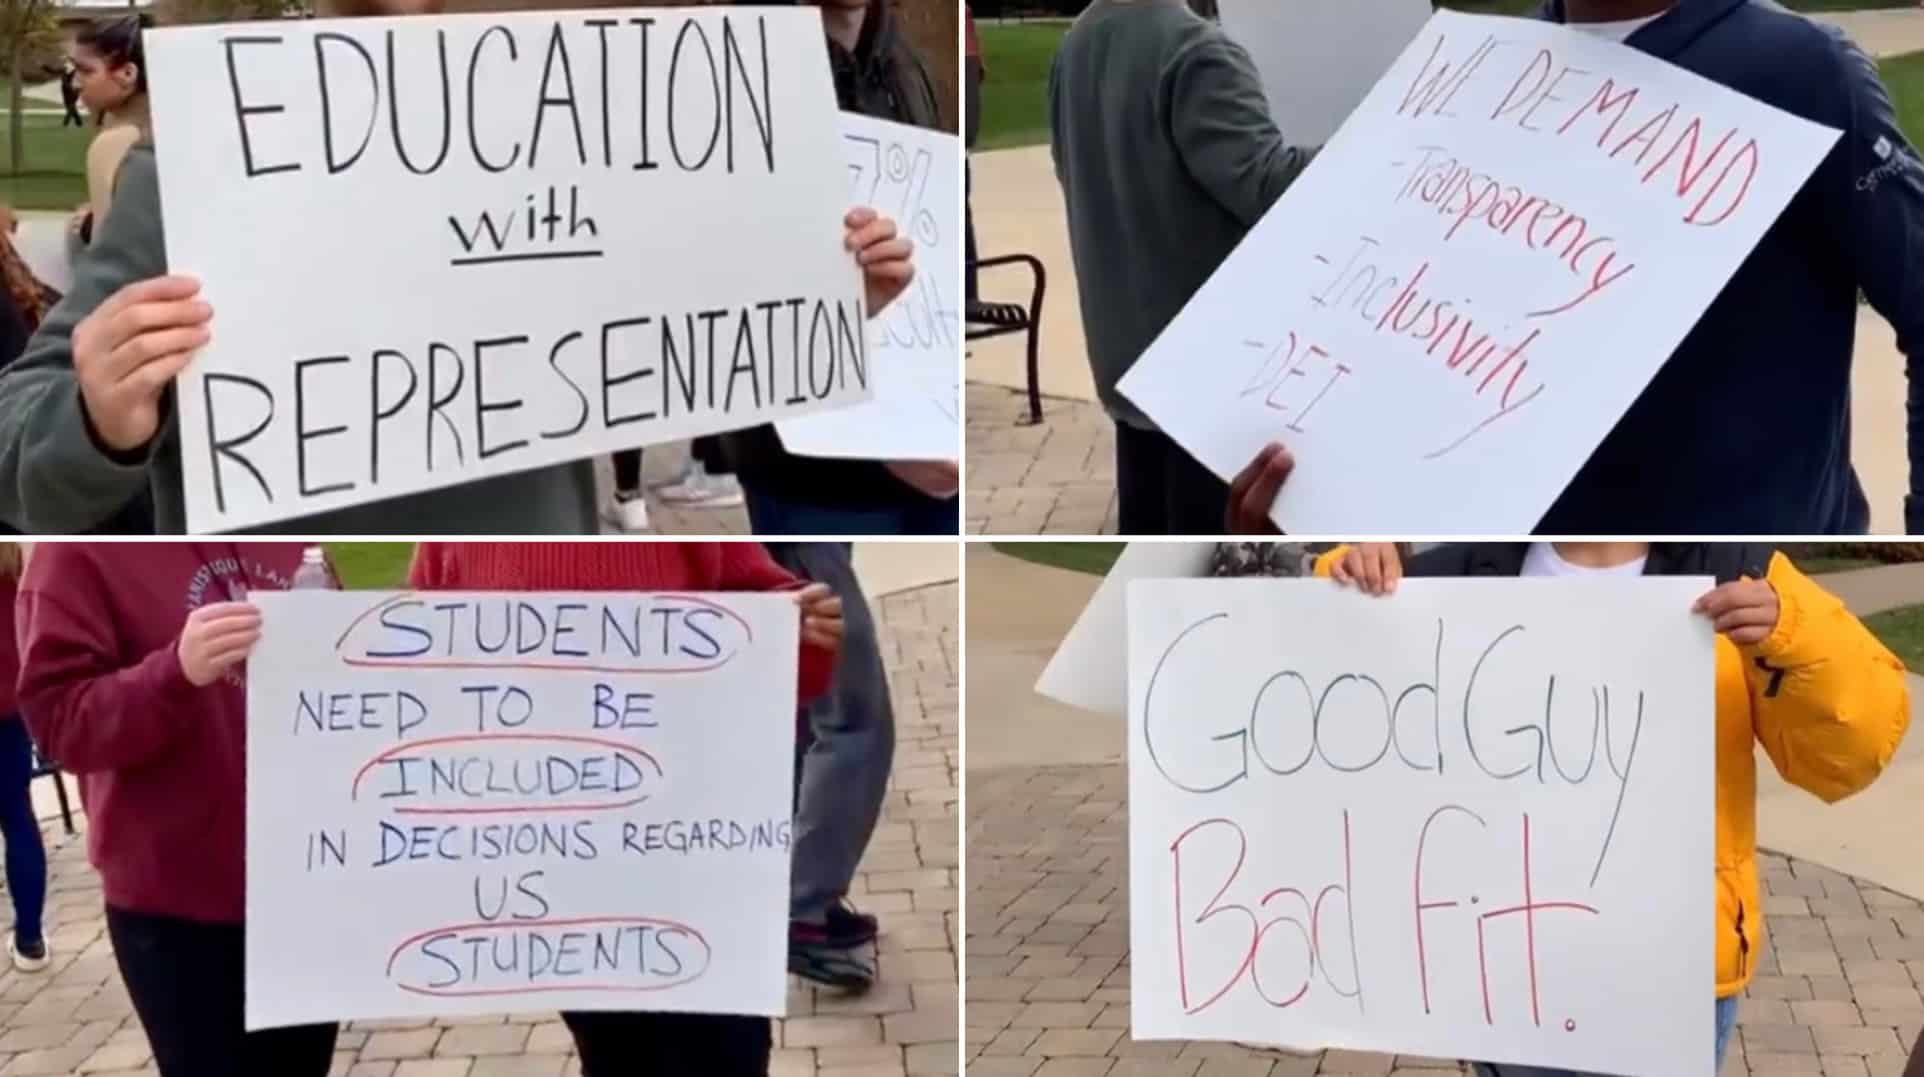 EDUCATION
with
REPRESENTATION
7%
WE DEMAND
-Transparency
-Inclusivity
-DEI
STUDENTS
NEED TO BE
INCLUDED
IN DECISIONS REGARDING
US
STUDENTS
Good Guy
Bad Fit.